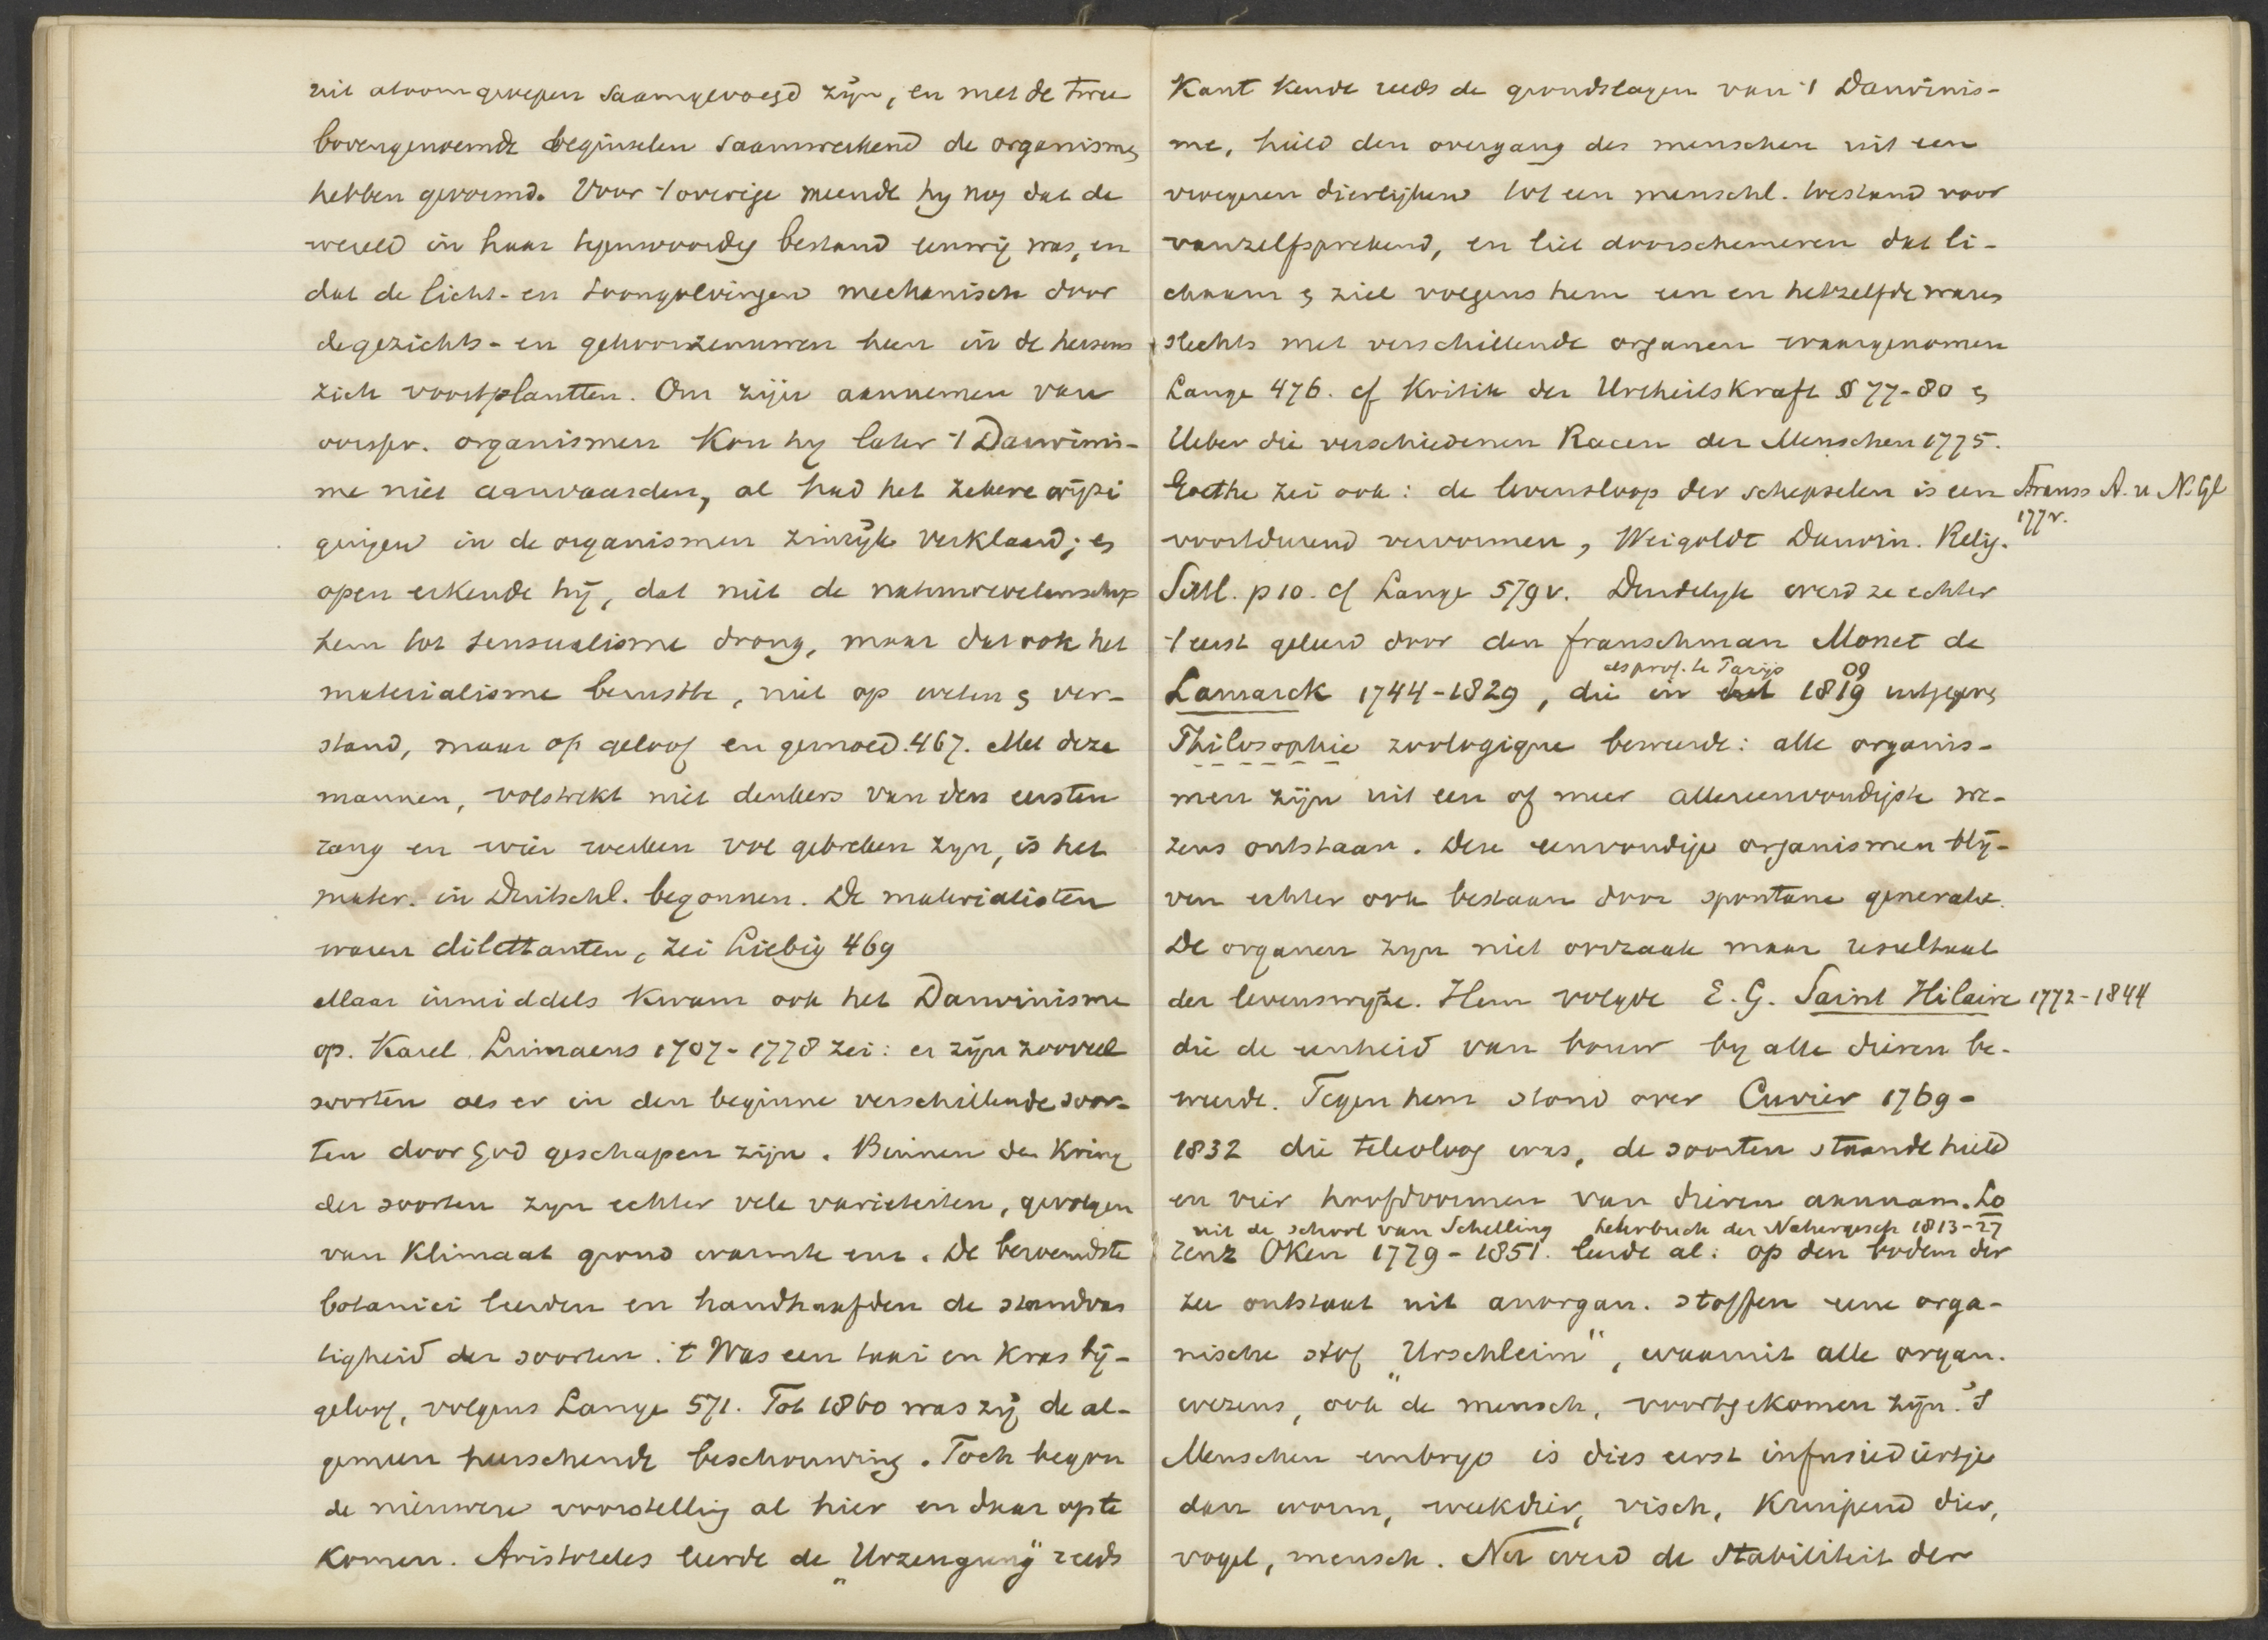 uit atoomgroepen saamgevoegd zijn, en met de twee
bovengenoemde beginselen saamwerkend de organismen
hebben gevormd. Voor 't overige meende hy nog dat de
wereld in haar tegenwoordig bestand eeuwig was, en
dat de licht- en toongolvingen mechanisch door
de gezichts- en gehoorzenuwen heen in de hersens
zich voortplantten. Om zijn aannemen van
oorspr. organismen kon hy later 't Darwinis-
me niet aanvaarden, al had het zekere wijzi
gingen in de organismen zinrijk verklaard; en
open erkende hij, dat niet de natuurwetenschap
hem tot sensualisme drong, maar dat ook het
materialisme berustte, niet op weten en ver-
stand, maar op geloof en gemoed. 467. Met deze
mannen, volstrekt niet denkers van den eersten
rang en wier werken vol gebreken zyn, is het
mater. in Duitschl. begonnen. De materialisten
waren dilettanten, zei Liebig 469
Maar inmiddels kwam ook het Darwinisme
op. Karel Linnaeus 1707-1778 zei: er zijn zooveel
soorten als er in den beginne verschillende soor-
ten door God geschapen zijn. Binnen den kring
der soorten zyn echter vele varieteiten, gevolgen
van klimaat grond warmte enz. De beroemdste
botanici leerden en handhaafden de standvas
tigheid der soorten. 't Was een taai en kras bij-
geloof, volgens Lange 571. Tot 1860 was zij de al-
gemeen heerschende beschouwing. Toch begon
de nieuwere voorstelling al hier en daar op te
komen. Aristoteles leerde de „Urzeugung" reeds
Kant kende reeds de grondslagen van 't Darwinis-
me, hield den overgang des menschen uit een
vroegeren dierlijken tot een menschl. toestand voor
vanzelfsprekend, en liet doorschemeren dat li-
chaam en ziel volgens hem een en hetzelfde waren
slechts met verschillende organen waargenomen
Lange 476. cf Kritik der Urtheilskraft § 77-80 en
Ueber die verschiedenen Racen der Menschen 1775.
Goethe zei ook: de levensloop der schepselen is een Strauss A. u N. Gl
177v.
voortdurend vervormen, Weigoldt Darwin. Relig.
Sittl. p 10. cf Lange 579v. Duidelyk werd ze echter
't eerst geleerd door den franschman Monet de
als prof. te Parijs 09
Lamarck 1744-1829, die in 1819 uitgegeven
Philosophie zoologique beweerde: alle organis-
men zijn uit een of meer allereenvoudigste we-
zens ontstaan. Deze eenvoudige organismen blij-
ven echter ook bestaan door spontane generatie.
De organen zyn niet oorzaak maar resultaat
der levenswyze. Hem volgde E. G. Saint Hilaire 1772-1844
die de eenheid van bouw by alle dieren be-
weerde. Tegen hem stond over Cuvier 1769-
1832 die teleoloog was, de soorten staande hield
en vier hoofdvormen van dieren aannam. Lo
uit de school van Schelling Lehrbuch der Naturgesch 1813-27
renz Oken 1779-1851. leerde al: op den bodem der
zee ontstaat uit anorgan. stoffen eene orga-
nische stof „Urschleim", waaruit alle organ.
wezens, ook de mensch, voortgekomen zijn. 't
Menschen embryo is dies eerst infusiediertje
dan worm, weekdier, visch, kruipend dier,
vogel, mensch. Nu werd de stabiliteit der